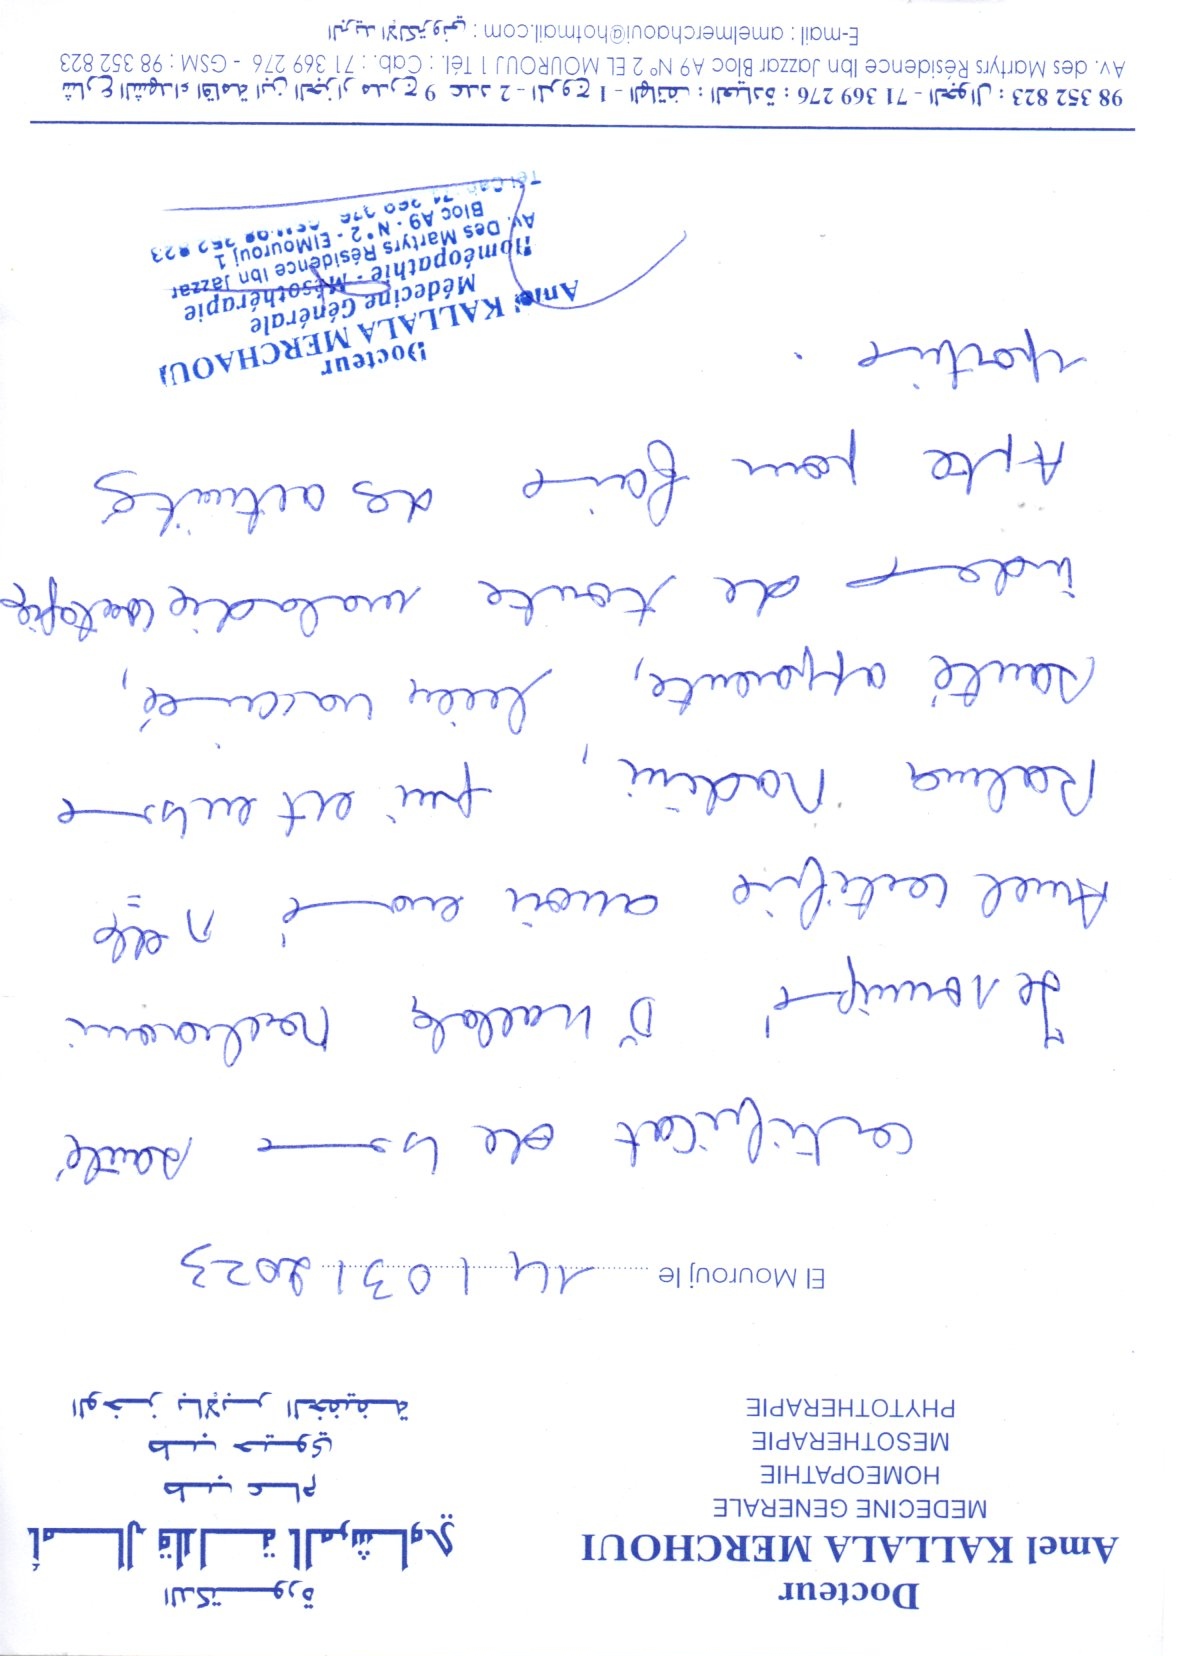 Docteur
Amel KALLALA MERCHOUI
MEDECINE GENERALE
HOMEOPATHIE
MESOTHERAPIE
PHYTOTHERAPIE
الدكتورة
أمال قلالة المرشاوي
طب عام
طب حيوي
الوخز بالإبر الخفيفة
El Mourouj le 14/03/2023
certificat de bonne santé
Je soussigné Dr Kallala Merchaoui
Amel certifie avoir examiné
qui est en bonne
santé apparente, bien vacciné,
indemne de toute maladie contagieuse
Apte pour faire des activités
sportive.
Docteur
Amel KALLALA MERCHAOUI
Médecine Générale
Homéopathie - Mésothérapie
Av. Des Martyrs Résidence Ibn Jazzar
Bloc A9 - N° 2 - ElMourouj 1
شارع الشهداء اقامة ابن الجزار مدرج 9 عدد 2 - المروج 1 - الهاتف : العيادة : 71 369 276 - الجوال : 98 352 823
Av. des Martyrs Résidence Ibn Jazzar Bloc A9 N° 2 EL MOUROUJ 1 Tél. : Cab. : 71 369 276 - GSM : 98 352 823
E-mail : amelmerchaoui@hotmail.com : البريد الإلكتروني